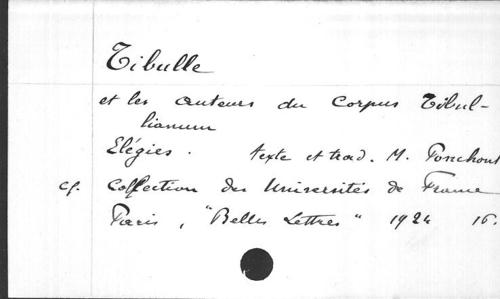 Tibulle
et les auteurs du Corpus Tibul-
lianum
Elégies. texte et trad. M. Ponchont
cf. Collection des Universités de France
Paris, "Belles Lettres" 1924 16.